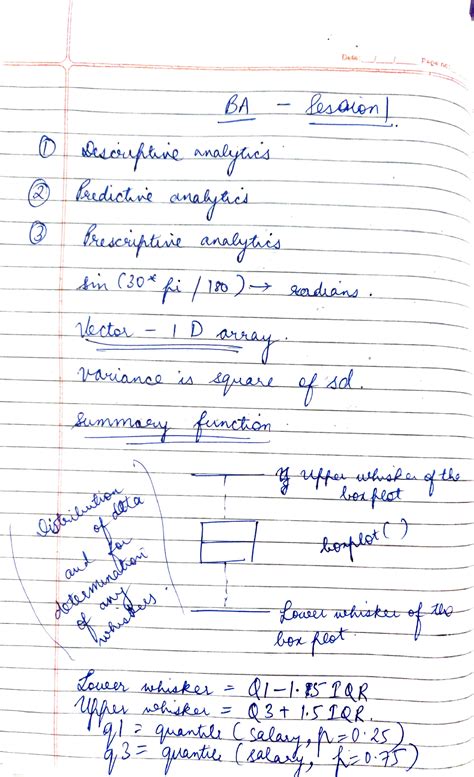 Date: / / Page no.
BA - Session 1
① Descriptive analytics
② Predictive analytics
③ Prescriptive analytics
sin (30* pi / 180) → radians.
Vector - 1 D array.
Variance is square of sd.
Summary function
Upper whisker of the
boxplot
Distribution
of data
and for
determination
of any
whiskers.
boxplot( )
Lower whisker of the
box plot.
Lower whisker = Q1-1.5 IQR
Upper whisker = Q3 + 1.5 IQR.
q1 = quantile (salary, p = 0.25)
q3 = quantile (salary, p = 0.75)